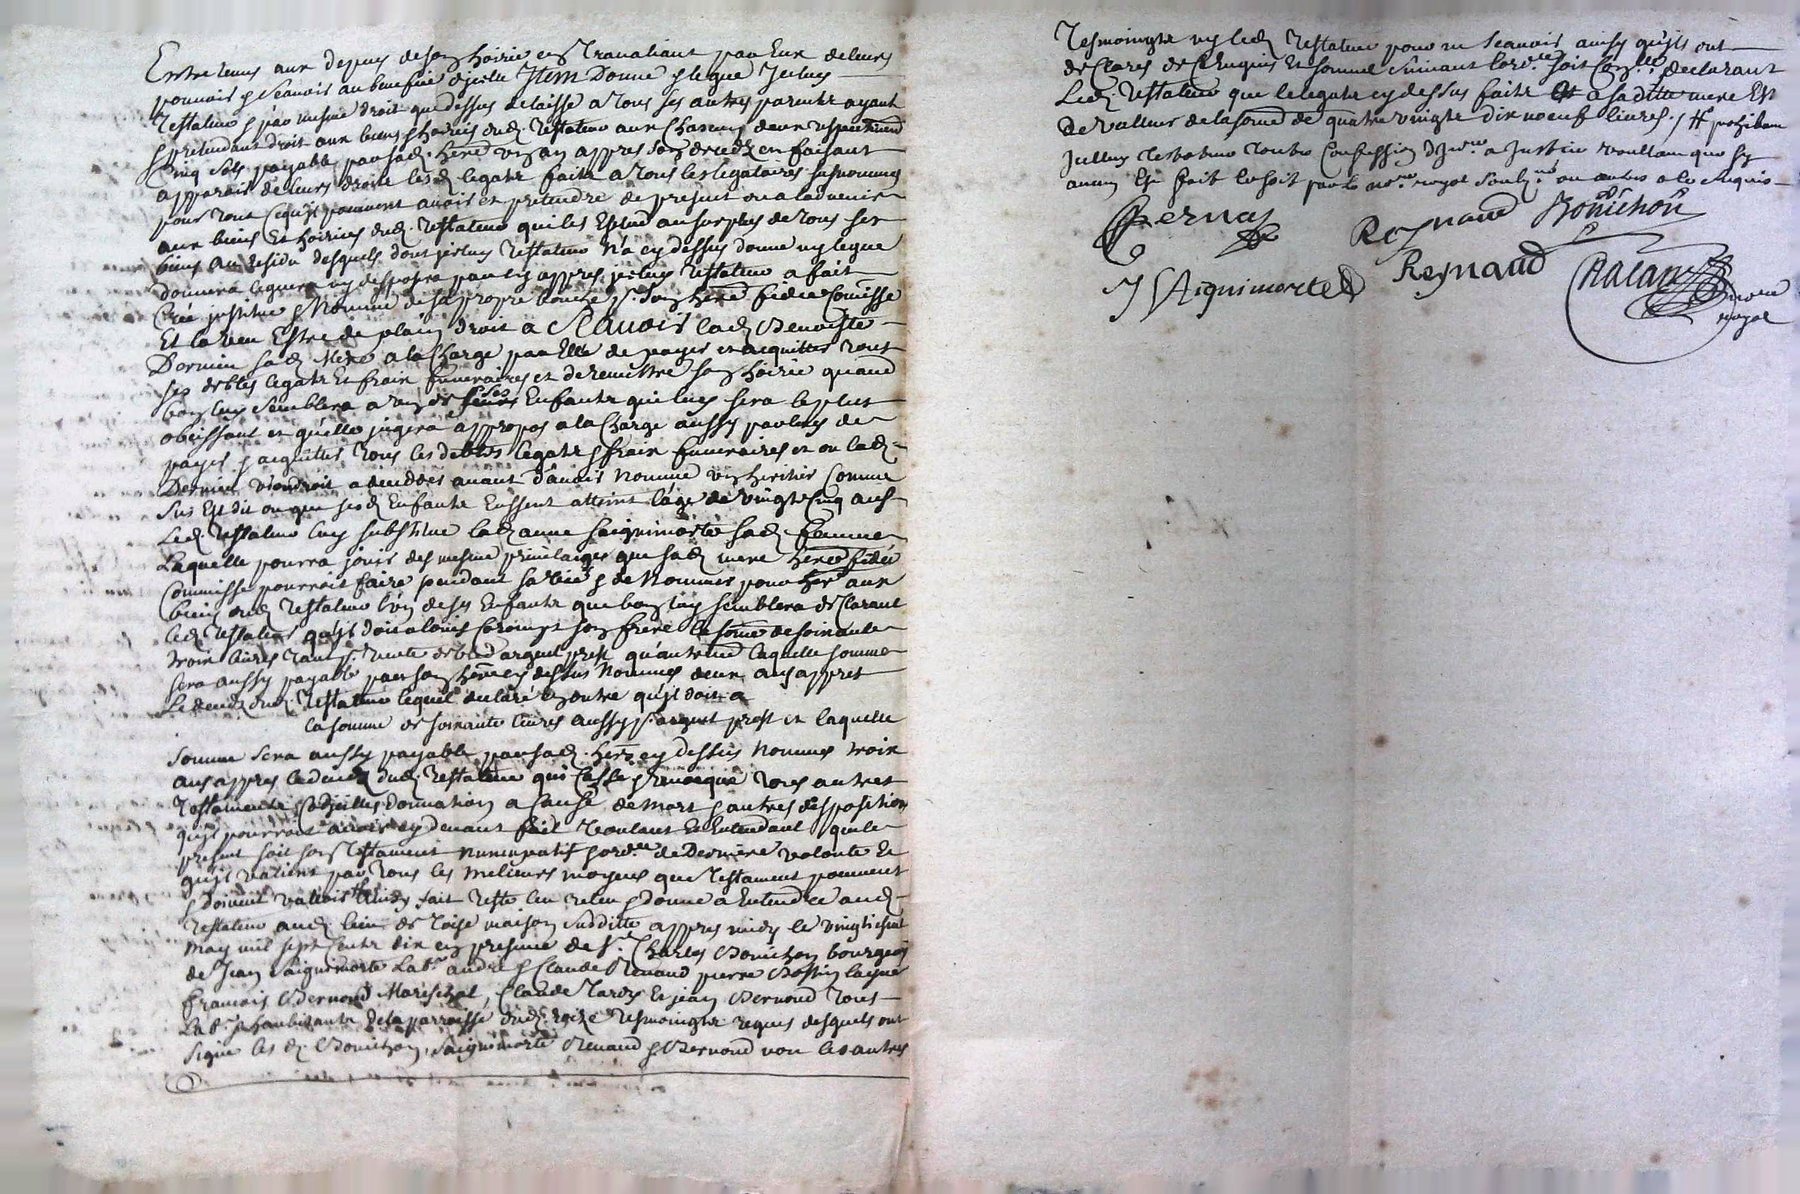 Entretenus aux depens de son hoirie en travaliant par Eux de leurs
pouvoir & scavoir au benefice d'jcelle Jtem donne & legue Jceluy
testateur & par mesme droit que dessus delaisse a tous ses autres parents ayant
& pretendant droit aux biens & hoirie dud. testateur aux chascuns d'eux
Cinq sols payable par sad. here un an appres son deces en faisant
apparoir de leurs droits lesd. legats faits a tous les legataires
pour tout ce qu'jls pouvoient avoir et pretendre de present ou a ladvenir
aux biens Et hoiries dud. testateur qui les Exclud au surplus de tous ses
biens au residu desquels dont jceluy testateur n'a cy dessus donne ny legue
donnera leguera ny disposera par cy appres jceluy testateur a fait
Cree jnstitue & Nomme de sa propre bouche pr. son here fidei Commisse
Et la veu Estre de plain droit a Scavoir lad. Benoiste
Dornin sad. Mere a la Charge par Elle de payer et acquitter tout
ses debtes legats Et frais funeraires et de remettre son hoirie quand
bon luy semblera a un de ses Enfants qui luy sera le plus
obeissant et quelle jugera appropos a la Charge aussy par luy de
payer & acquitter tous les debtes legats & frais funeraires et ou lad.
Dornin viendroit a deceddes avant d'avoir nomme un heritier Comme
sus Est dit ou que sesd. Enfants Eussent atteint l'age de vingt Cinq ans
Led. testateur luy substitue lad. anne saiguimorte sad. femme
Laquelle pourra jouir des mesme privilaiges que sad. mere here fidei
Commisse pourroit faire pendant sa vie & de nommer pour her aux
biens dud. testateur l'un de ses Enfants que bon luy semblera declarant
led. testateur qu'jl doit a louis son frere la somme de soixante
trois livres tant pr. vente de bled argent prest qu'autrement laquelle somme
sera aussy payable par son here cy dessus nommes deux ans appres
le deces dud. testateur lequel declare en outre qu'jl doit a
la somme de soixante livres aussy pr. argent prest et laquelle
somme sera aussy payable par sad. here cy dessus nommes trois
ans appres le deces dud. testateur qui Casse & revocque tous autres
testaments Codjcilles donnation a Cause de mort & autres disposition
qu'jl pourroit avoir cy devant fait voulant Et Entendant que le
present soit son testament nuncupatif & ord.re de Derniere volonte Et
qu'jl vallent par tous les melieurs moyens que testament peuvent
& doivent valloir # Ainsy fait leu releu & donne a Entendre aud.
testateur aud. lieu de maison susditte appres midy le
may mil sept cents dix en presence de sr. Charles Bonichon bourgeois
de Jean saiguimorte Lab.r andre & Claude Renaud pierre laisne
francois Bernoud Mareschal, Claude Et jean Bernoud tous
Lab.r & habitants de la parroisse dud. tesmoingts requis desquels ont
signe les d. Bonichon, saiguimorte Renaud & Bernoud non les autres
tesmoingts ny led. testateur pour ne scavoir ainsy qu'jls ont
declares de Ce requis Et somme suivant l'ord.ce soit declarant
Led. testateur que le legats cy dessus faits a saditte mere Est
de valleur de la somme de quatre vingts dix noeuf livres. # prohibant
Jcelluy testateur toutte Confession d'jnre a Justice voullant que sy
aucun Est fait le soit par le nore. royal ou autre a ce requis
Bernoz
Reynaud Bonichon
J SAiguimorte Reynaud
nore
royal